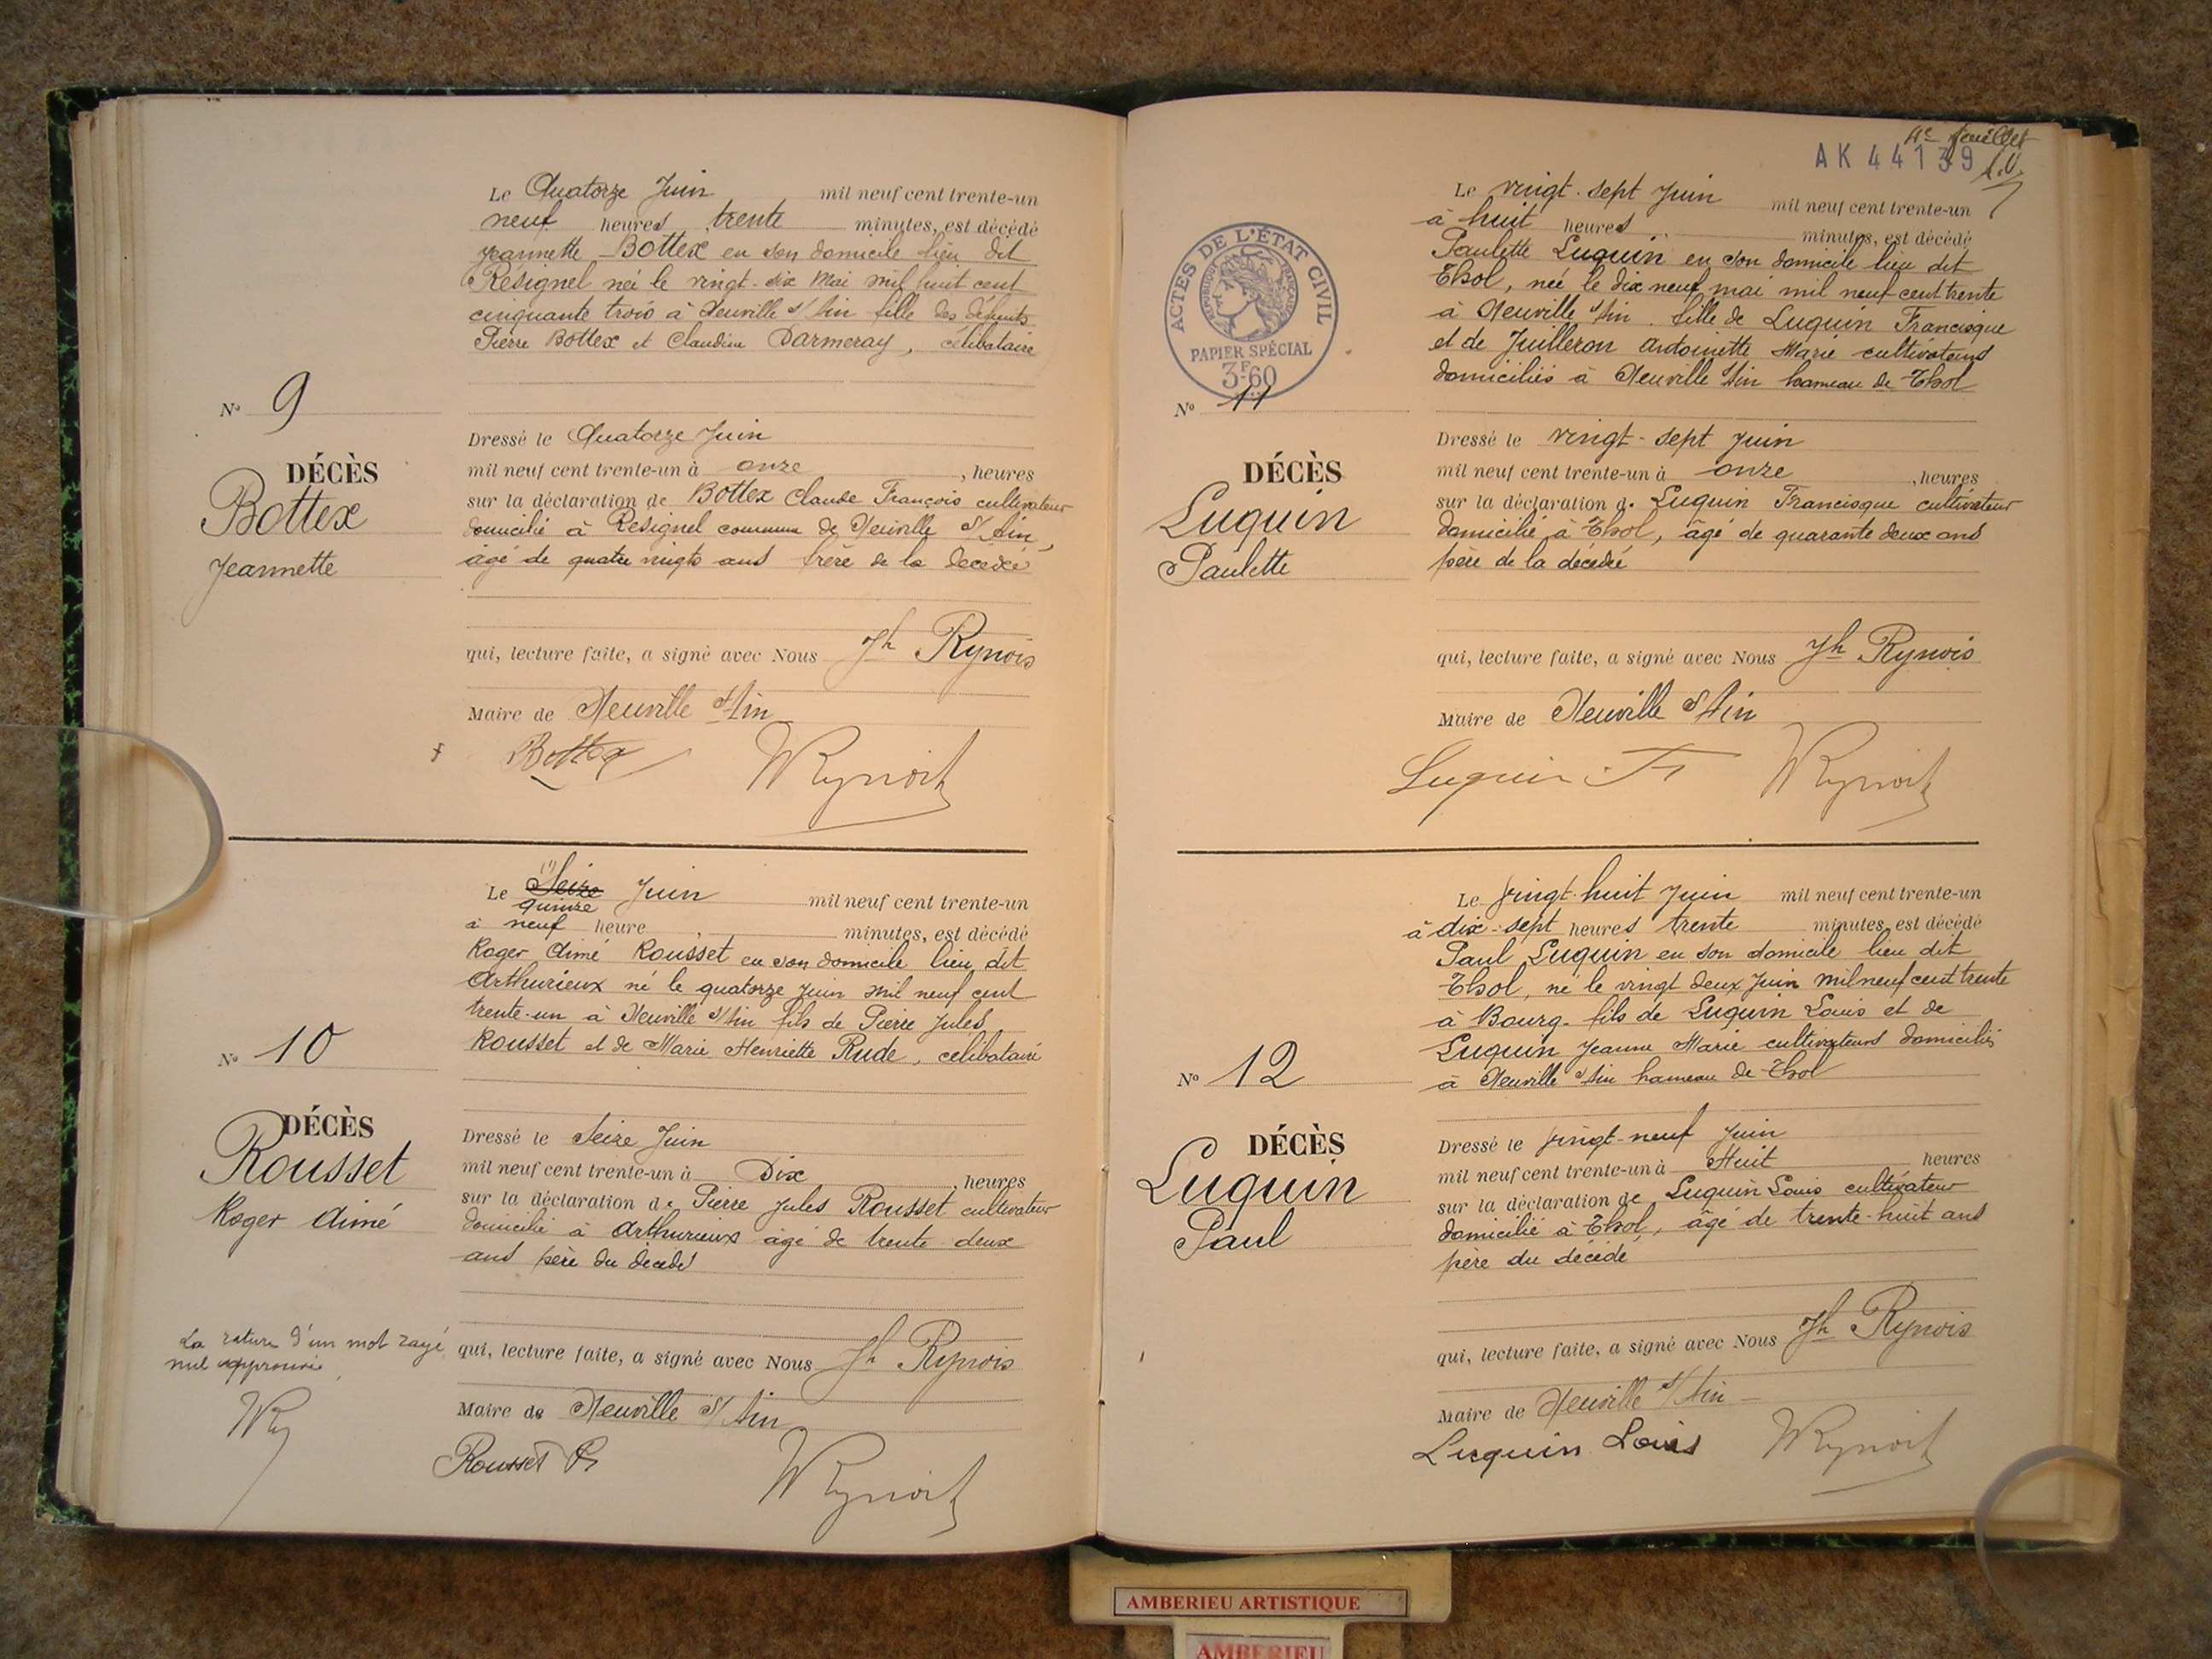 Le Quatorze Juin mil neuf cent trente-un
neuf heures trente minutes, est décédé
Jeannette Bottex en son domicile lieu dit
Résignel née le vingt-six Mai mil huit cent
cinquante trois à Neuville s/ Ain fille des défunts
Pierre Bottex et Claudine Darmeray, célibataire
N° 9
DÉCÈS
Bottex
Jeannette
Dressé le Quatorze Juin
mil neuf cent trente-un à onze, heures
sur la déclaration de Bottex Claude François cultivateur
domicilié à Résignel commune de Neuville s/ Ain,
âgé de quatre vingts ans frère de la décédée
qui, lecture faite, a signé avec Nous Jh Rynois
Maire de Neuville s/ Ain
Bottex
(1)
Le Seize Juin mil neuf cent trente-un
quinze
à neuf heure, minutes, est décédé
Roger Aimé Rousset en son domicile lieu dit
Arthurieux né le quatorze juin mil neuf cent
trente-un à Neuville s/ Ain fils de Pierre Jules
Rousset et de Marie Henriette Rude, célibataire
N° 10
DÉCÈS
Rousset
Roger Aimé
Dressé le Seize Juin
mil neuf cent trente-un à Dix, heures
sur la déclaration de Pierre Jules Rousset cultivateur
domicilié à Arthurieux âgé de trente deux
ans père du décédé
La rature d'un mot rayé
nul approuvée
qui, lecture faite, a signé avec Nous Jh Rynois
Maire de Neuville s/ Ain
Rousset P
4e feuillet
AK 44139
ACTES DE L'ÉTAT CIVIL
RÉPUBLIQUE FRANÇAISE
PAPIER SPÉCIAL
3F60
Le vingt-sept Juin mil neuf cent trente-un
à huit heures minutes, est décédé
Paulette Luquin en son domicile lieu dit
Thol, née le dix neuf mai mil neuf cent trente
à Neuville s/ Ain fille de Luquin Francisque
et de Juilleron Antoinette Marie cultivateurs
domiciliés à Neuville s/ Ain hameau de Thol
N° 11
DÉCÈS
Luquin
Paulette
Dressé le vingt-sept juin
mil neuf cent trente-un à onze, heures
sur la déclaration de Luquin Francisque cultivateur
domicilié à Thol, âgé de quarante deux ans
père de la décédée
qui, lecture faite, a signé avec Nous Jh Rynois
Maire de Neuville s/ Ain
Luquin Fr
Le vingt-huit Juin mil neuf cent trente-un
à dix-sept heures trente minutes, est décédé
Paul Luquin en son domicile lieu dit
Thol, né le vingt deux Juin mil neuf cent trente
à Bourg. fils de Luquin Louis et de
Luquin Jeanne Marie cultivateurs domiciliés
à Neuville s/ Ain hameau de Thol
N° 12
DÉCÈS
Luquin
Paul
Dressé le vingt-neuf Juin
mil neuf cent trente-un à Huit heures
sur la déclaration de Luquin Louis cultivateur
domicilié à Thol, âgé de trente-huit ans
père du décédé
qui, lecture faite, a signé avec Nous Jh Rynois
Maire de Neuville s/ Ain
Luquin Louis
AMBERIEU ARTISTIQUE
AMBERIEU